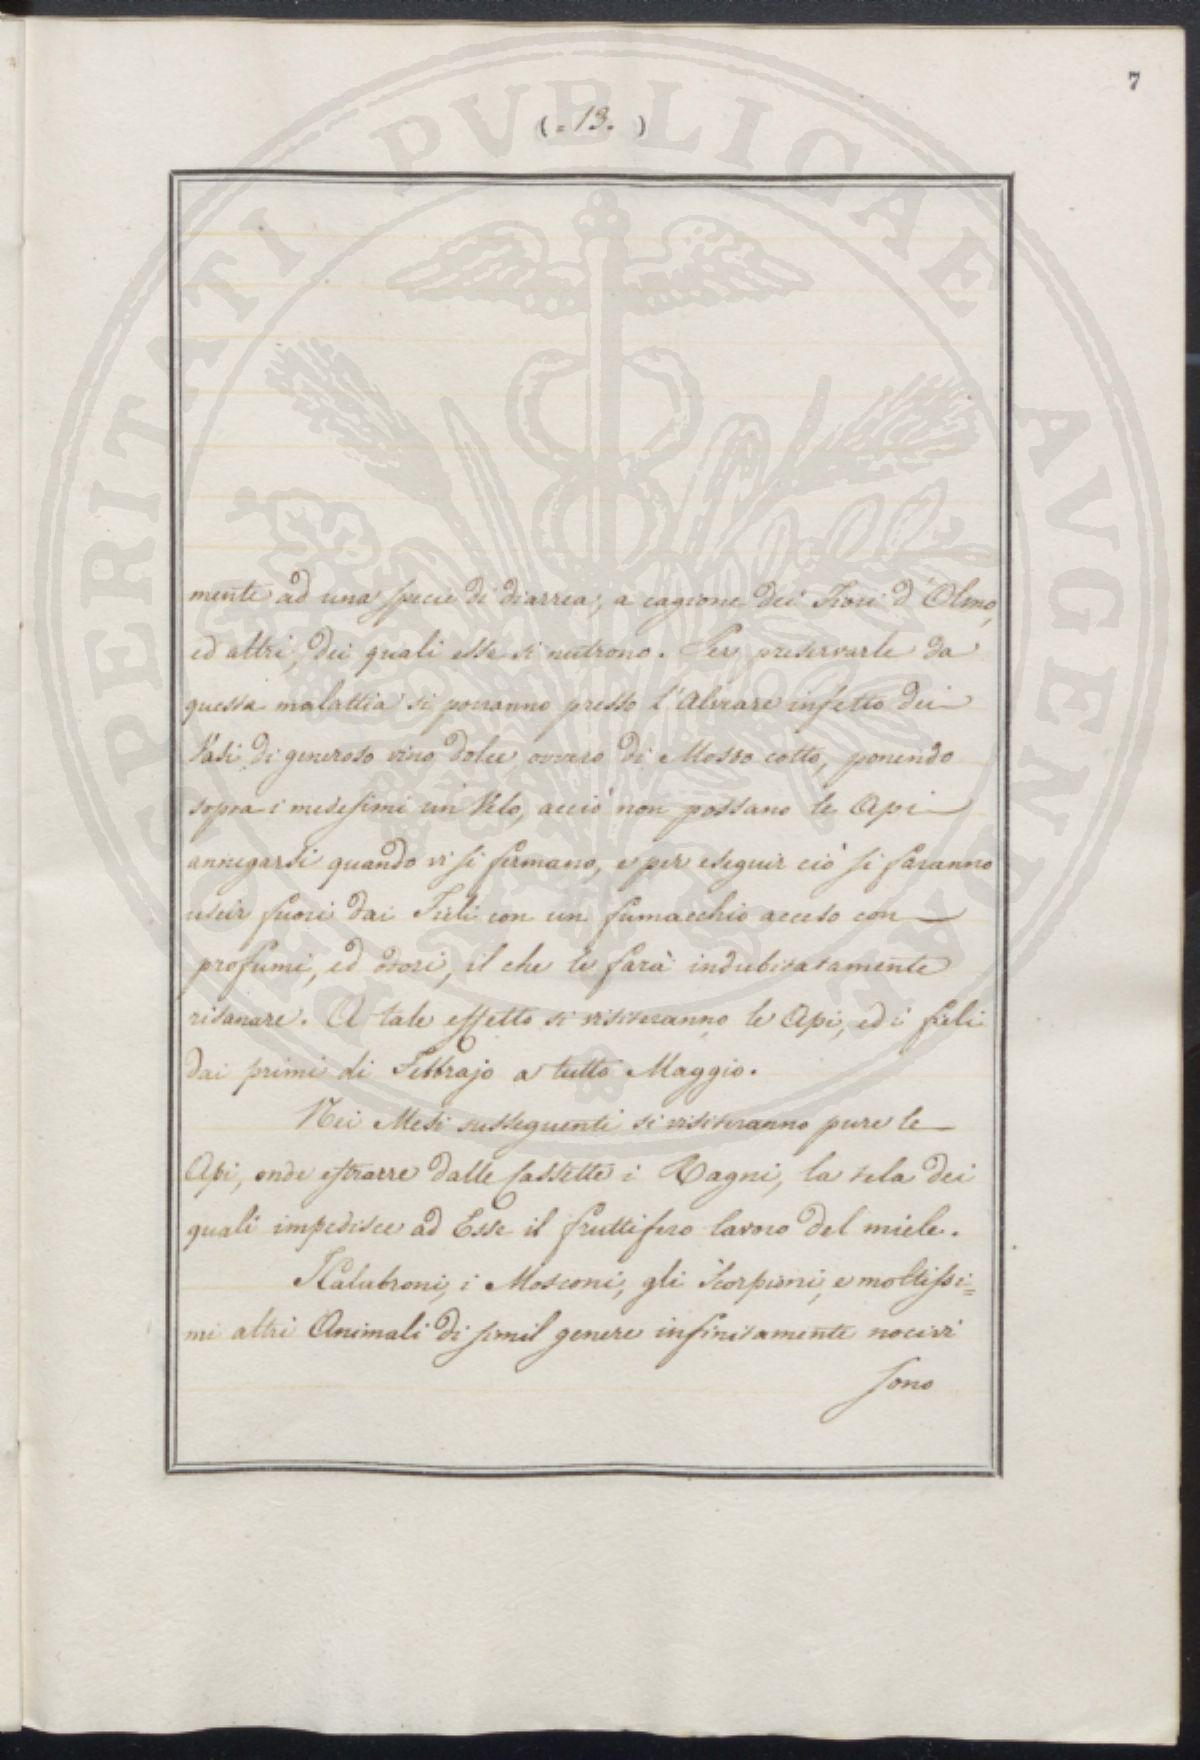 7
(. 13. )
mente ad una specie di diarrea, a cagione dei Fiori d'Olmo,
ed altri, dei quali esse si nutrono. Per preservarle da
questa malattia si porranno presso l'Alveare infetto dei
Vasi di generoso vino dolce, ovvero di Mosto cotto, ponendo
sopra i medesimi un Velo, acciò non possano le Api
annegarsi quando vi si fermano, e per eseguir ciò si faranno
uscir fuori dai Fieli con un fumacchio acceso con
profumi, ed odori, il che le farà indubitatamente
risanare. A tale effetto si visiteranno le Api, ed i fieli
dai primi di Febbrajo a tutto Maggio.
Nei Mesi susseguenti si visiteranno pure le
Api, onde estrarre dalle Cassette i Ragni, la tela dei
quali impedisce ad Esse il fruttifero lavoro del miele.
I Calabroni, i Mosconi, gli Scorpioni, e moltissi=
mi altri Animali di simil genere infinitamente nocivi
sono
PROSPERITATI PVBLICAE AVGENDAE